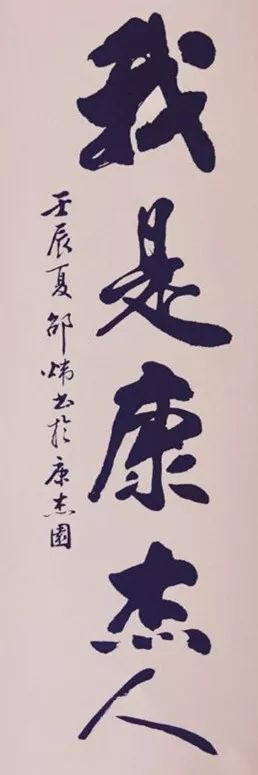 我是康杰人
壬辰夏邵炜书于康杰園